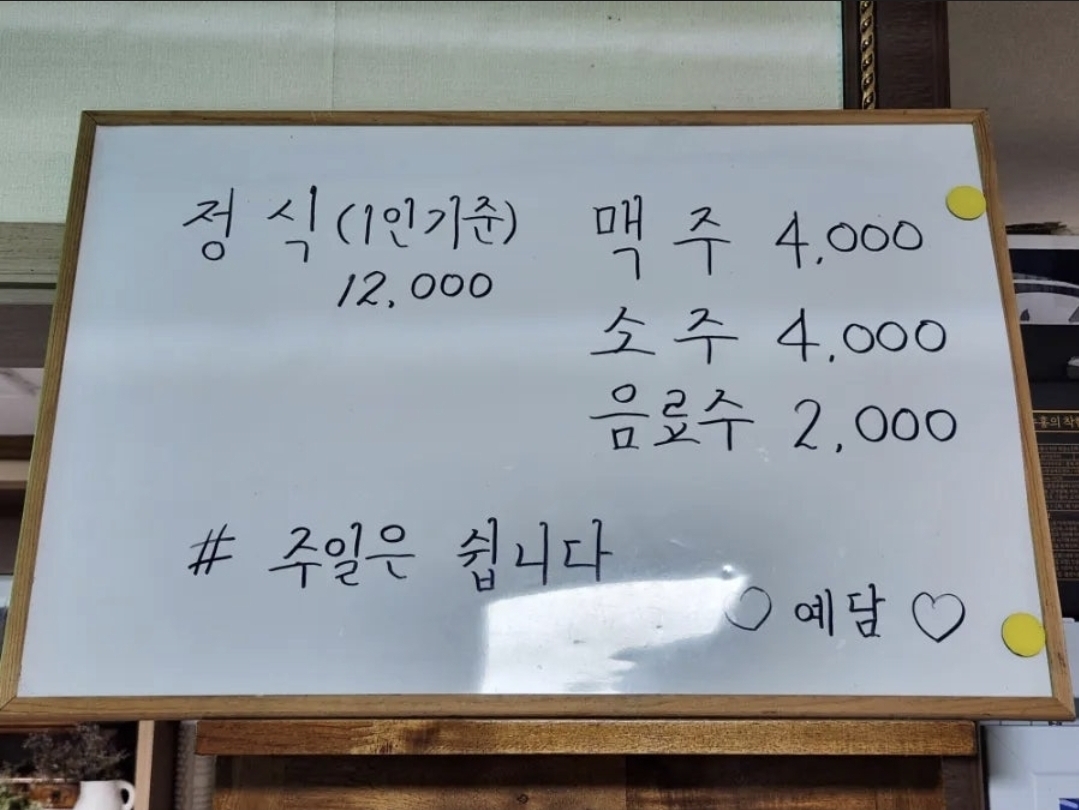 정식(1인기준)
12,000
맥주 4,000
소주 4,000
음료수 2,000
# 주일은 쉽니다
♡ 예담 ♡